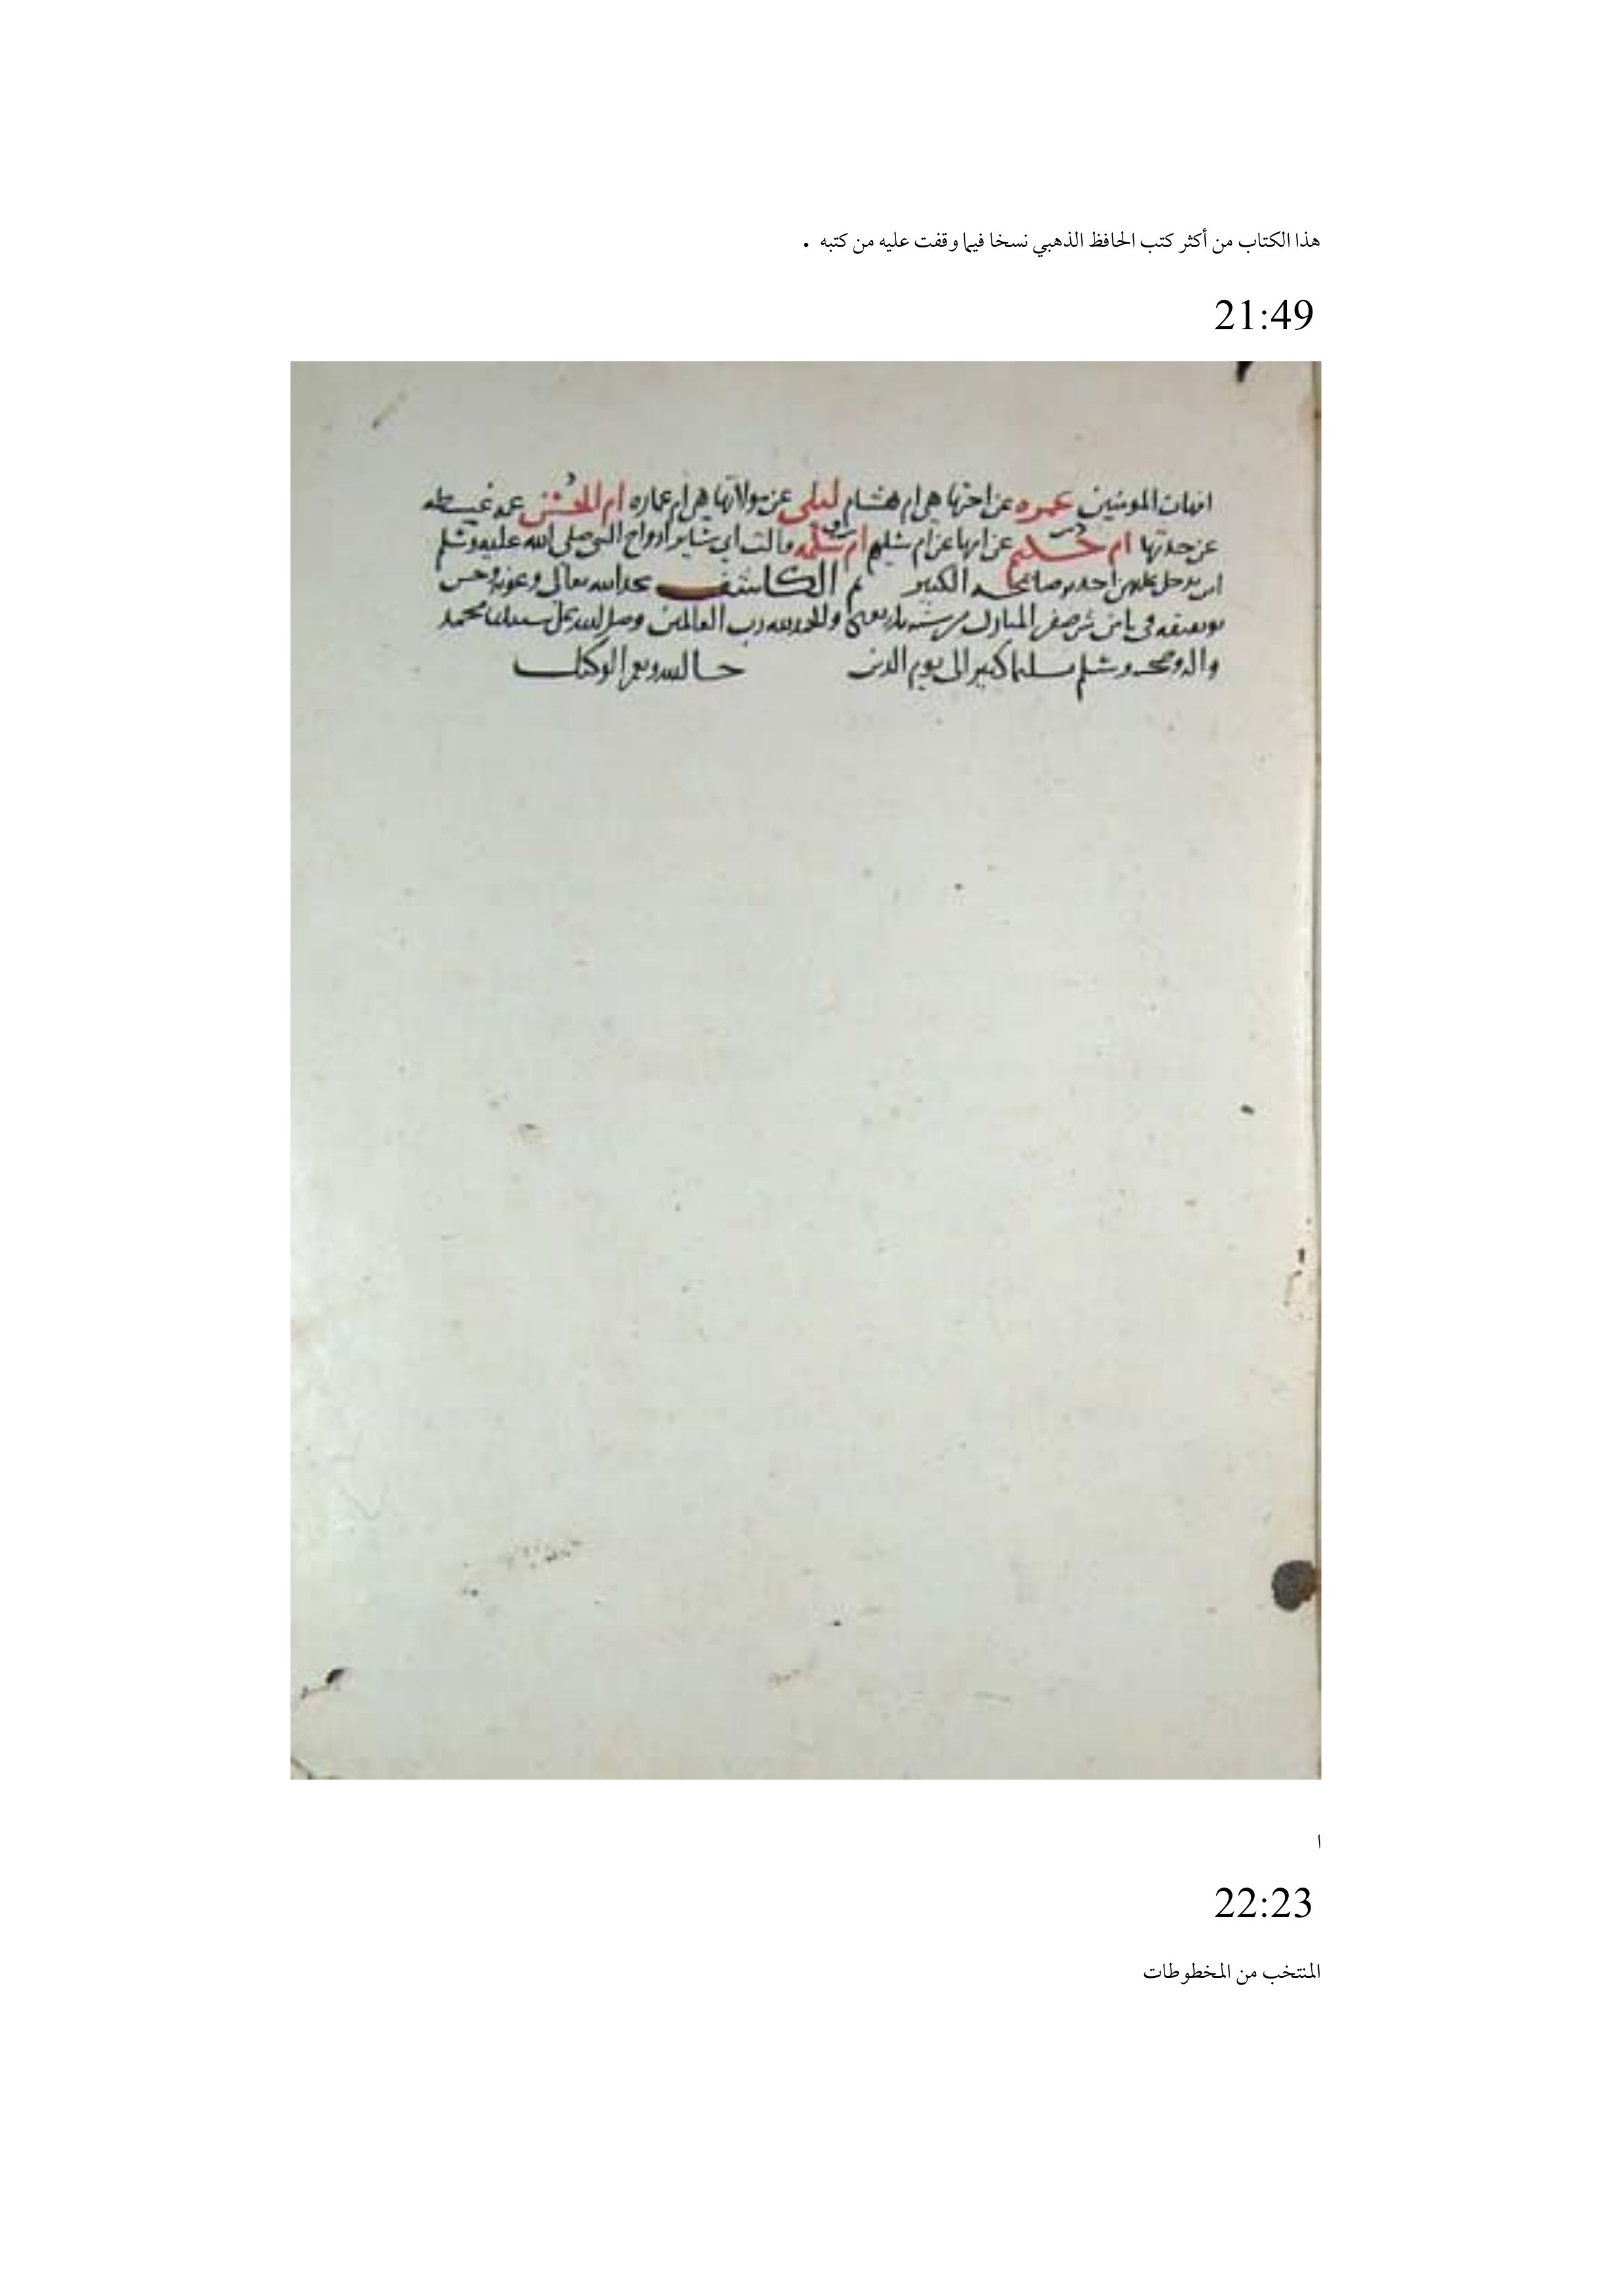 هذا الكتاب من أكثر كتب الحافظ الذهبي نسخا فيما وقفت عليه من كتبه .
21:49
امهات المومنين عمره عن اختها هي ام هشام ليلى عن مولاتها هي ام عماره ام الحسن عمة غبطه
عن جدتها ام حكيم عن امها عن ام سلمه ام سلمه قالت ابى سائر ازواج النبي صلى الله عليه وسلم
ان يدخل عليهن احد برضاعة الكبير تم الكاشف بحمد الله تعالى وعونه وحسن
توفيقه في ثامن شهر صفر المبارك والحمد لله رب العالمين وصلى الله على سيدنا محمد
واله وصحبه وسلم تسليما كثيرا الى يوم الدين حسبنا الله ونعم الوكيل
ا
22:23
المنتخب من المخطوطات